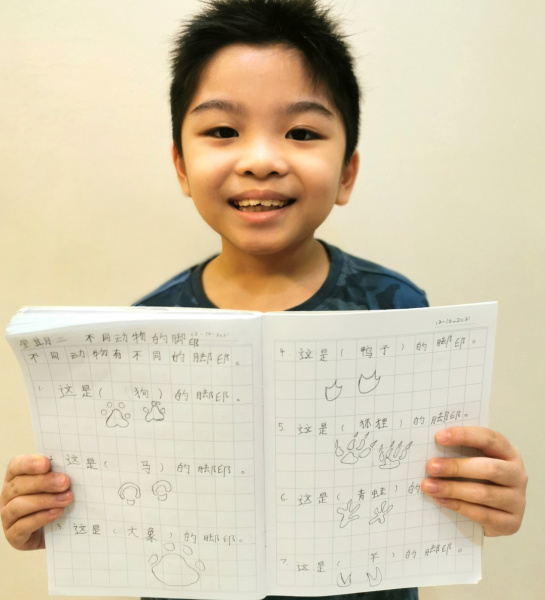 学习 二 不同动物的脚印 12-10-2021
不同动物有不同的脚印。
1. 这是（ 狗 ）的脚印。
2. 这是（ 马 ）的脚印。
3. 这是（ 大象 ）的脚印。
12-10-2021
4. 这是（ 鸭子 ）的脚印。
5. 这是（ 狐狸 ）的脚印。
6. 这是（ 青蛙 ）的
7. 这是（ 羊 ）的脚印。